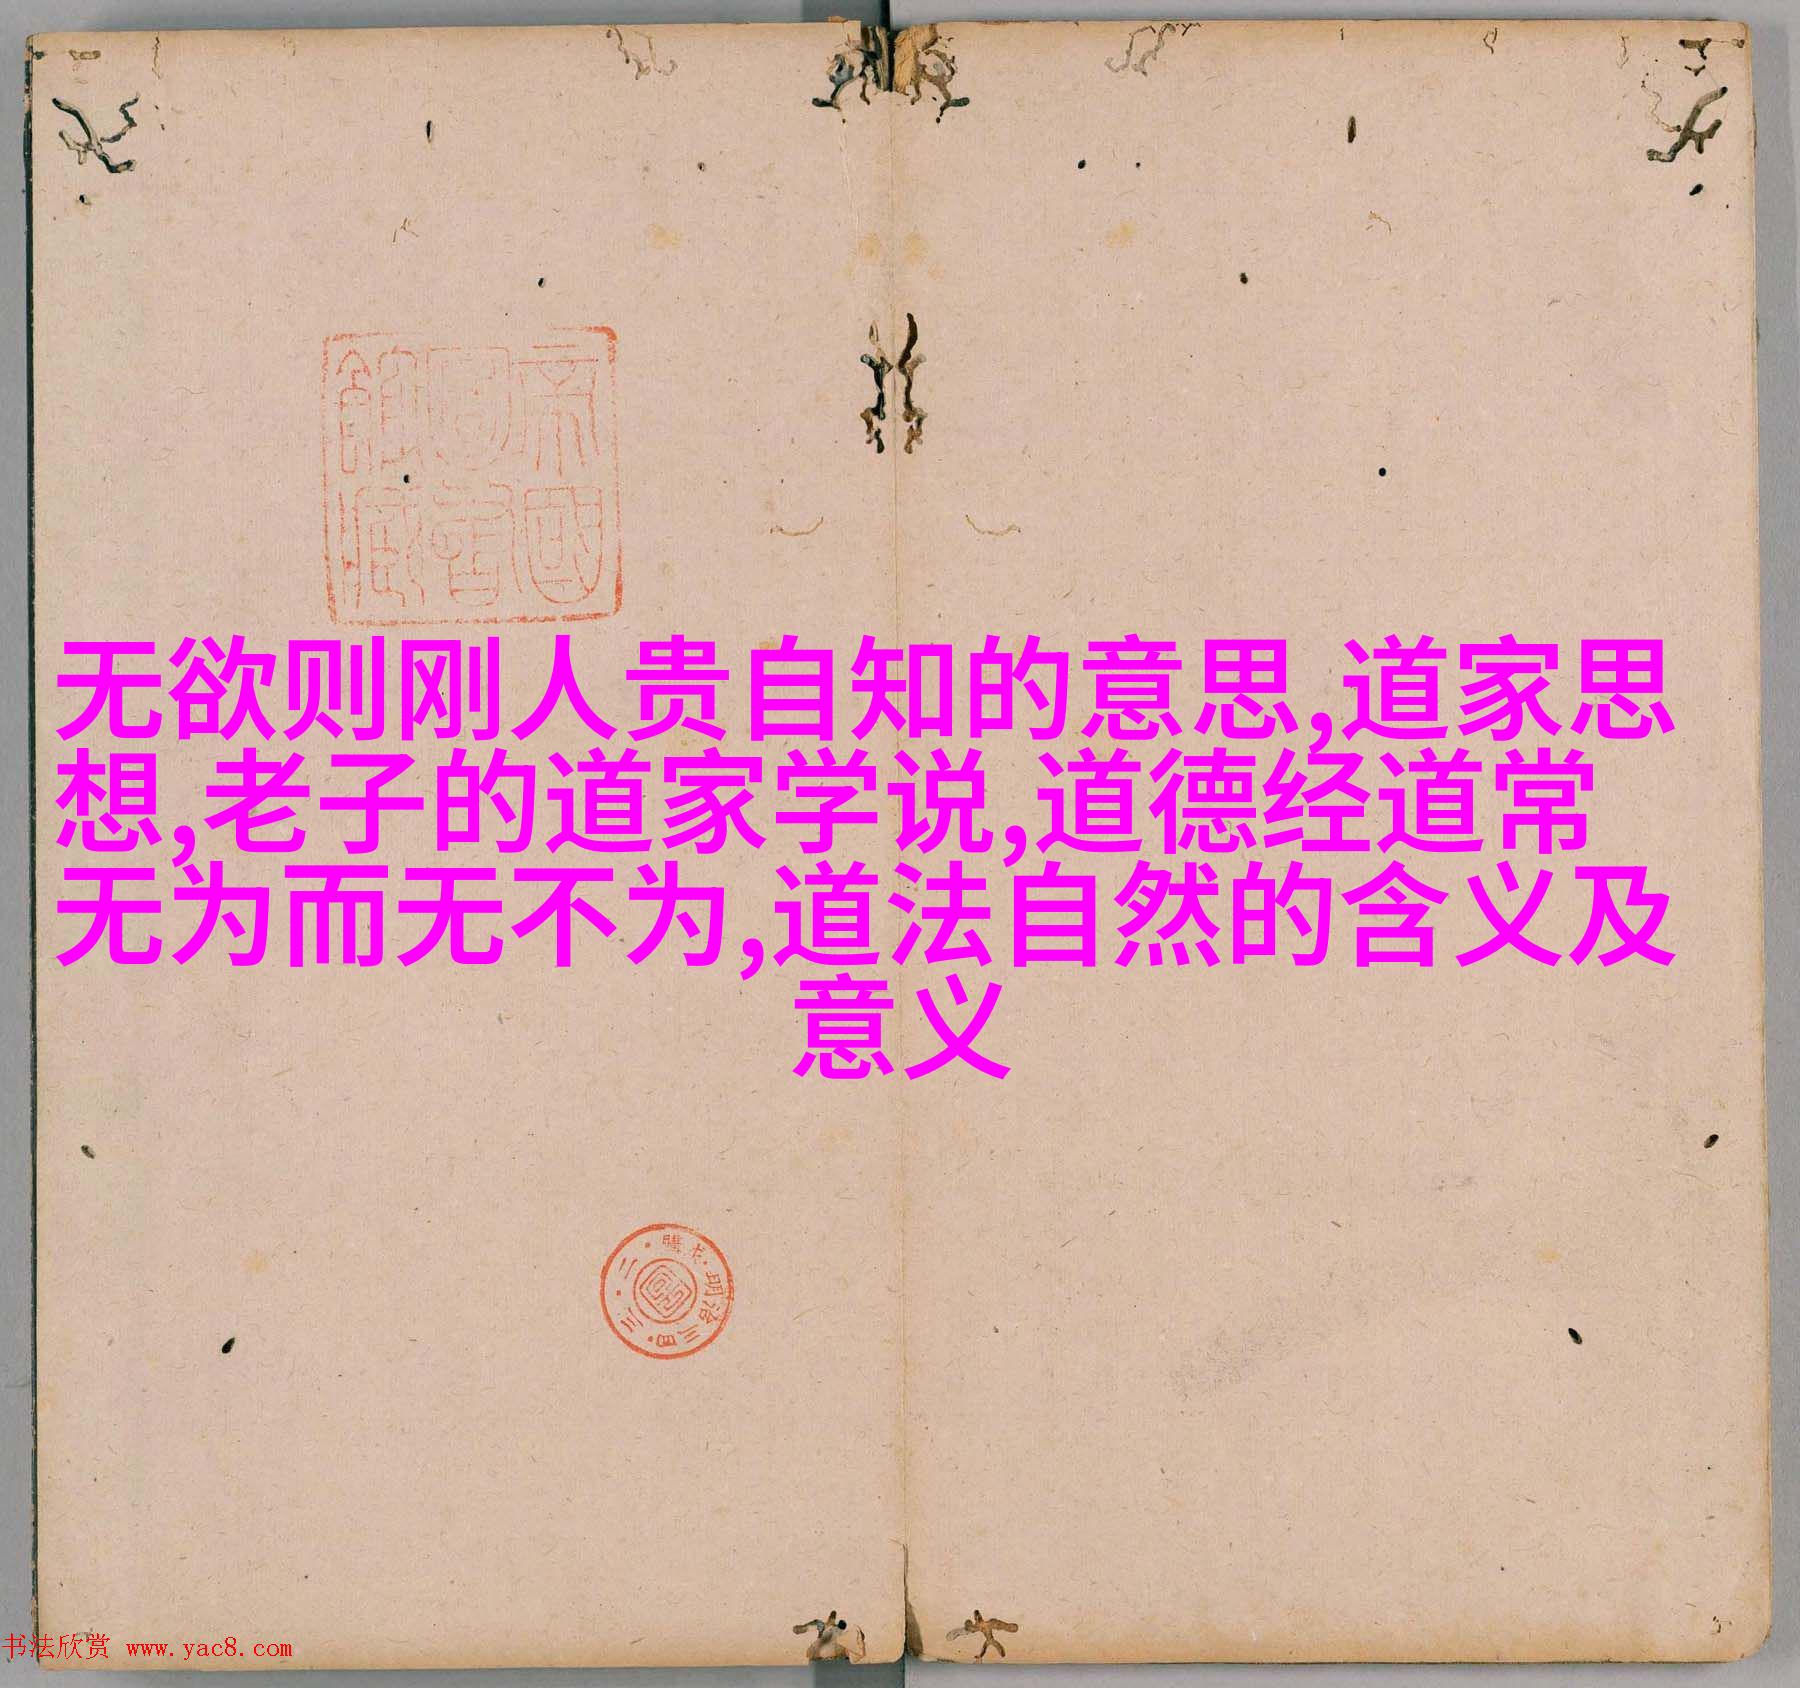 帝國
圖書
館藏
无欲则刚人贵自知的意思,道家思
想,老子的道家学说,道德经道常
无为而无不为,道法自然的含义及
意义
明治三四·三·二·購求·
书法欣赏 www.yac8.com